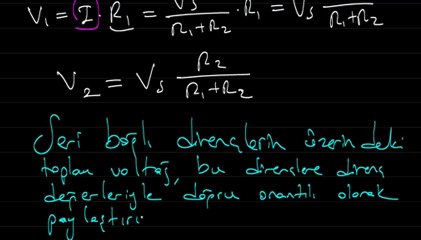 V₁ = I · R₁ = Vs / (R₁+R₂) · R₁ = Vs / (R₁+R₂)
V₂ = Vs R₂ / (R₁+R₂)
Seri bağlı dirençlerin üzerindeki
toplam voltaj, bu dirençlere direnç
değerleriyle doğru orantılı olarak
paylaştırı